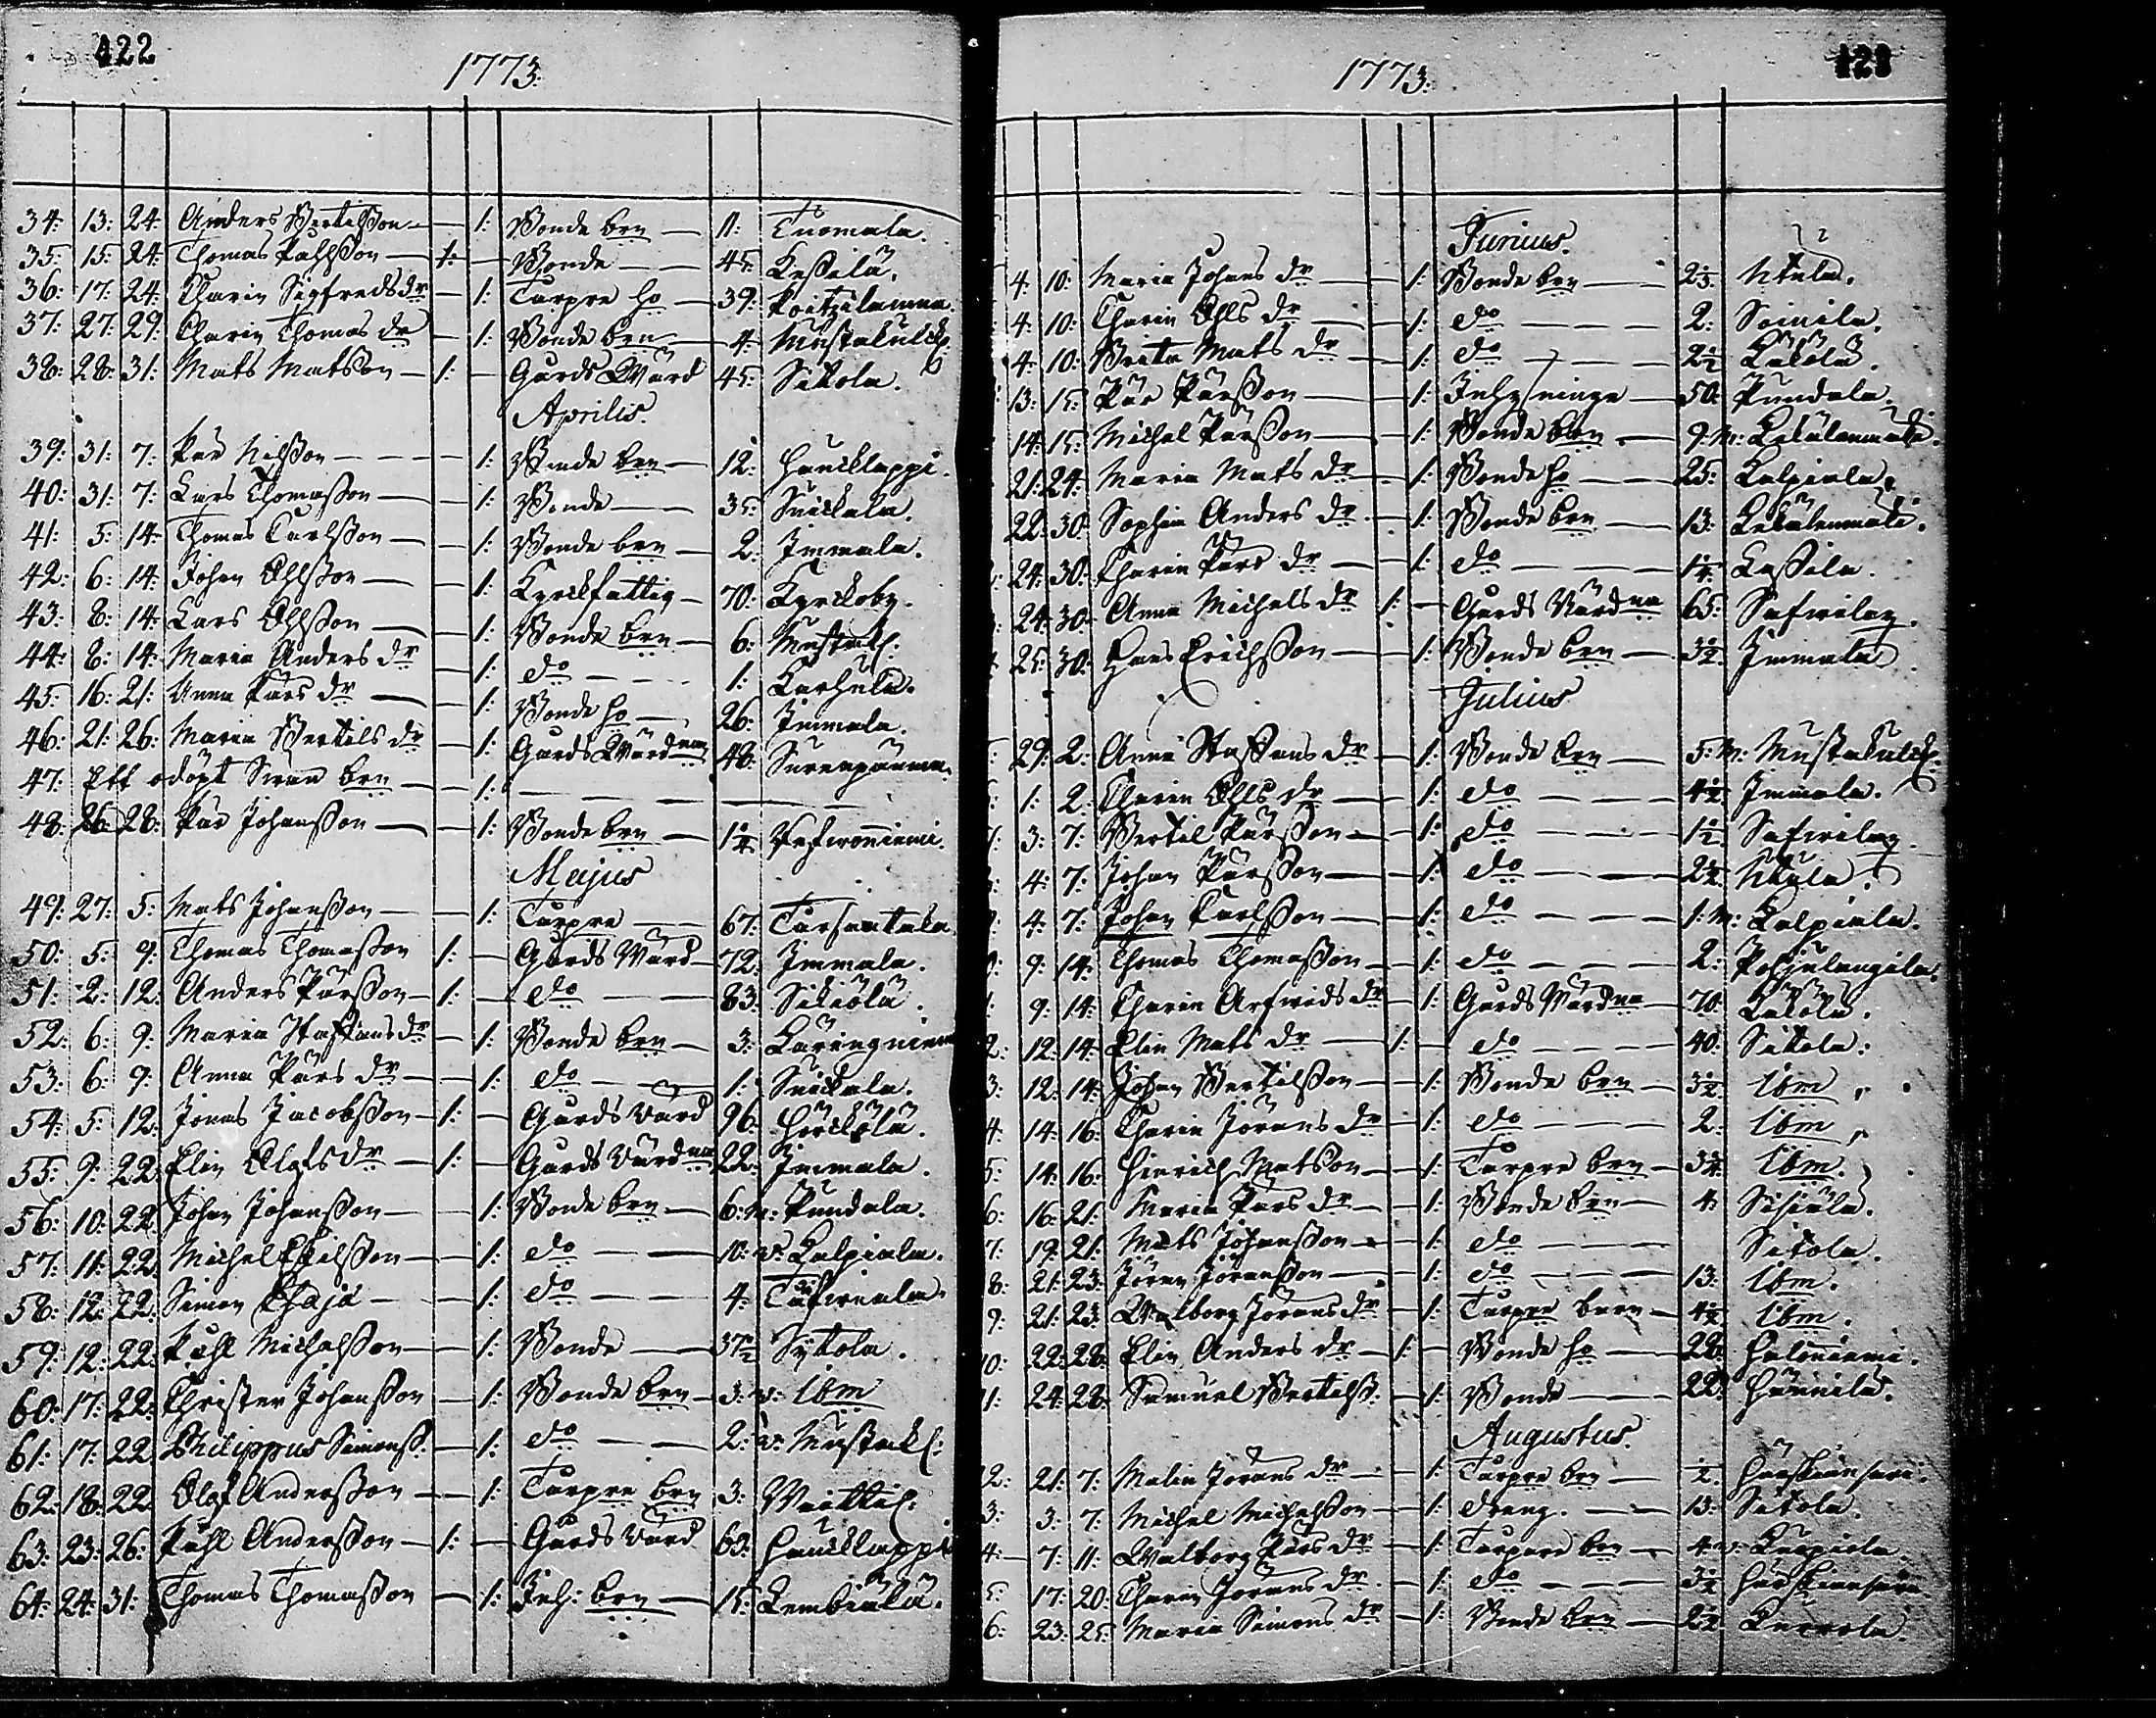 422
1773.
34: 13: 24: Anders Bertilsson — 1: Bonde brn — 11: Tuomala.
35: 15: 24: Thomas Påhlsson — 1: — Bonde — 45: Kessilä.
36: 17: 24: Charin Sigfreds dr — 1: Torpre ho — 39: Koitzilanma.
37: 27: 29: Charin Thomas dr — 1: Bonde brn — 4: Mustakulck.
38: 28: 31: Mats Matsson — 1: — Gards Wård 45: Sitola.
Aprilis.
39: 31: 7: Pär Nilsson — 1: Bonde brn — 12: Haucklappi.
40: 31: 7: Lars Thomasson — 1: Bonde — 35: Suickala.
41: 5: 14: Thomas Carlsson — 1: Bonde brn — 2: Immala.
42: 6: 14: Johan Ohlsson — 1: Kyrckfattig — 70: Kyrckoby.
43: 8: 14: Lars Ohlsson — 1: Bonde brn — 6: Mustak:
44: 8: 14: Maria Anders dr — 1: do — 1: Karhula.
45: 16: 21: Anna Pärs dr — 1: Bonde ho — 26: Immala.
46: 21: 26: Maria Bertils dr — 1: Gards Wårdna 48: Surenpäuma.
47: Ett odöpt Swan brn — 1: —
48: 26: 28: Pär Johansson — 1: Bonde brn — 1/4 Wesironiemi.
Majus
49: 27: 5: Mats Johansson — 1: Torpre — 67: Torsantaka.
50: 5: 9: Thomas Thomasson 1: — Gårds Wård — 72: Immala.
51: 2: 12: Anders Pärsson — 1: — do — 83: Sikiölä.
52: 6: 9: Maria Staffans dr — 1: Bonde brn — 3: Käringniemi
53: 6: 9: Anna Pärs dr — 1: do — 1: Suickala.
54: 5: 12: Jonas Jacobsson — 1: — Gards Vård 96: Hörckölä.
55: 9: 22: Elin Olofs dr — 1: — Gards Vårdna 22: Immala.
56: 10: 22: Johan Johansson — 1: Bonde brn — 6: w: Pundala.
57: 11: 22: Michel Eskilsson — 1: do — 10: w: Kalpiala.
58: 12: 22: Simon Chajä — 1: do — 4: Taswiala.
59: 12: 22: Påhl Michelsson — 1: Bonde — 37 1/2 Sytola.
60: 17: 22: Christer Johansson — 1: Bonde brn — 3: w: Ibm
61: 17: 22: Philippus Simonss. — 1: do — 2: w: Mustak:
62: 18: 22: Olof Andersson — 1: Torpre brn 3: Waittil:
63: 23: 26: Påhl Andersson — 1: — Gårds Vård 63: Haucklappi
64: 24: 31: Thomas Thomasson — 1: Inh: brn — 15: Kembiälä.
423
1773.
Junius.
4: 10: Maria Johans dr — 1: Bonde brn — 2 1/2 Utula.
4: 10: Charin Ohls dr — 1: do — 2: Soinila.
4: 10: Brita Mats dr — 1: do — 2 1/2 Kälölä.
13: 15: Pär Pärsson — 1: Inhysinge — 50: Pundala.
14: 15: Michel Pärsson — 1: Bonde brn — 9: w: Kekälenmäki.
21: 24: Maria Mats dr — 1: Bonde ho — 25: Kalpiala.
22: 30: Sophia Anders dr — 1: Bonde brn — 13: Kekälenmäki.
24: 30: Charin Pärs dr — 1: do — 1/4 Kessila.
24: 30: Anna Michels dr 1: — Gards Vårdna 65: Safwilax.
25: 30: Hans Erichsson — 1: Bonde brn — 3 1/2 Immala
Julius
29: 2: Anna Staffans dr — 1: Bonde brn — 5: w: Mustakulck:
1: 2: Charin Ohls dr — 1: do — 4 1/2 Immala.
3: 7: Bertil Pärsson — 1: do — 1 1/2 Safwilax
4: 7: Johan Pärsson — 1: do — 2 1/2 Utula.
4: 7: Johan Carlsson — 1: do — 1: w: Kalpiala.
9: 14: Thomas Thomasson — 1: do — 2: Pohjalangila.
9: 14: Charin Arfwids dr — 1: Gards Wårdna — 70: Kälölä.
12: 14: Elin Mats dr — 1: — do — 40: Sitola:
12: 14: Johan Bertilsson — 1: Bonde brn — 3 1/2 Ibm
14: 16: Charin Jörans dr — 1: do — 2: Ibm
14: 16: Hinrich Matsson — 1: Torpre brn — 3/4 Ibm.
16: 21: Maria Pärs dr — 1: Bonde brn — 4: Sihiälä.
19: 21: Mats Johansson — 1: do — Sitola.
21: 23: Jöran Jöransson — 1: do — 13: Ibm.
21: 23: Walborg Jörans dr — 1: Torpre barn — 4 1/2 Ibm.
22: 28: Elin Anders dr — 1: — Bonde ho — 28: Haloniemi.
24: 28: Samuel Bertilss. — 1: Bonde — 22: Hännilä.
Augustus.
21: 7: Malin Jörans dr — 1: Torpre brn — 1/2 Härskiansari.
3: 7: Michel Michelsson — 1: dreng. — 13: Sitola.
7: 11: Walborg Pärs dr — 1: Torpare brn — 4 w: Kurpiola.
17: 20: Charin Jörans dr — 1: do — 3 1/2 Härskiansari
23: 25: Maria Simons dr — 1: Bonde brn — 2 1/2 Kurrola.